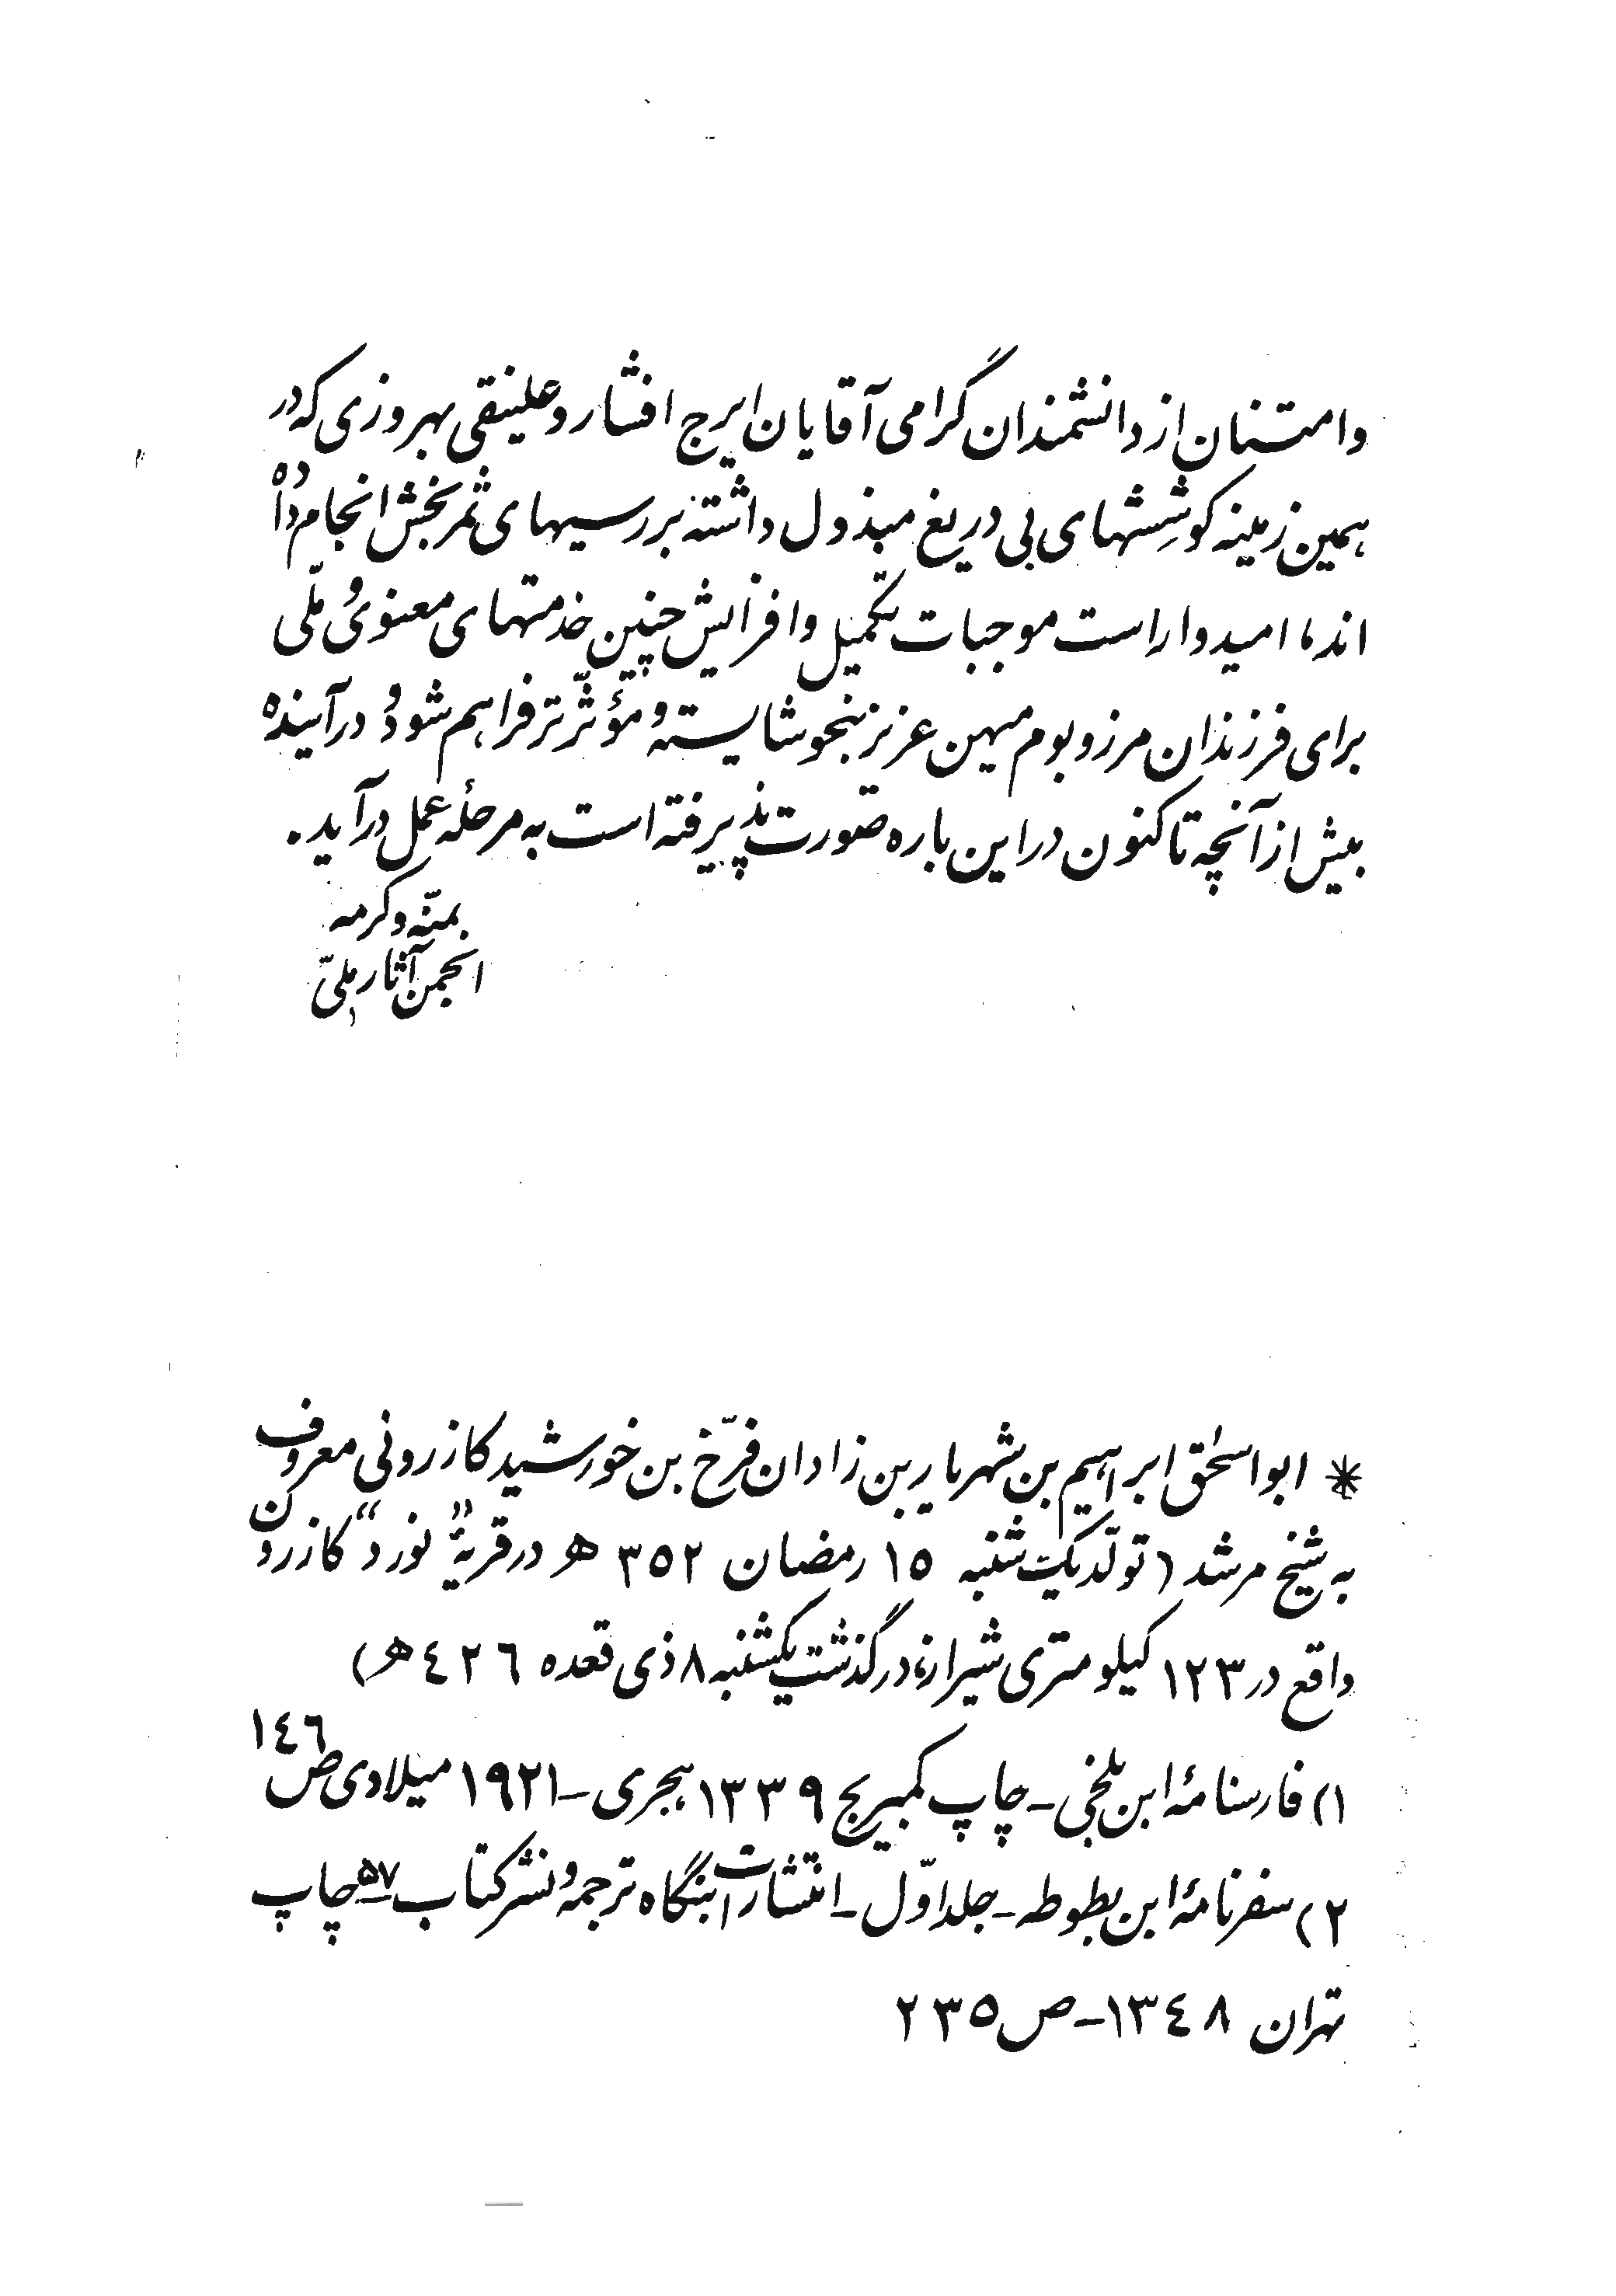 وامتنان از دانشمندان گرامی آقایان ایرج افشار و علینقی بهروزی که در
همین زمینه کوشِشهای بی دریغ مبذول داشته بررسیهای ثمربخش انجام داده
اند، امیدوار است موجبات تکمیل و افزایش چنین خدمتهای معنوی و ملّی
برای فرزندان مرز و بوم میهن عزیز بنحو شایسته و مؤثّرتر فراهم شود و در آینده
بیش از آنچه تا کنون در این باره صورت پذیرفته است به مرحلهٔ عمل درآید.
بمنّه و کرمه
انجمن آثار ملیّ
* ابو اسحٰق ابراهیم بن شهریار بن زادان فرّخ بن خورشید کازرونی معروف
به شیخ مرشد (تولّد یکشنبه ۱۵ رمضان ۳۵۲ هـ در قریهٔ "نورد" کازرون
واقع در ۱۲۳ کیلومتری شیراز، درگذشت یکشنبه ۸ ذی قعده ٤٢٦ هـ)
۱) فارسنامهٔ ابن بلخی - چاپ کمبریج ۱۳۳۹ هجری - ۱۹۲۱ میلادی ص ١٤٦
۲) سفرنامهٔ ابن بطوطه - جلد اوّل - انتشارات بنگاه ترجمه و نشر کتاب - ۵۷ - چاپ
تهران ١٣٤٨ - ص ۲۳۵